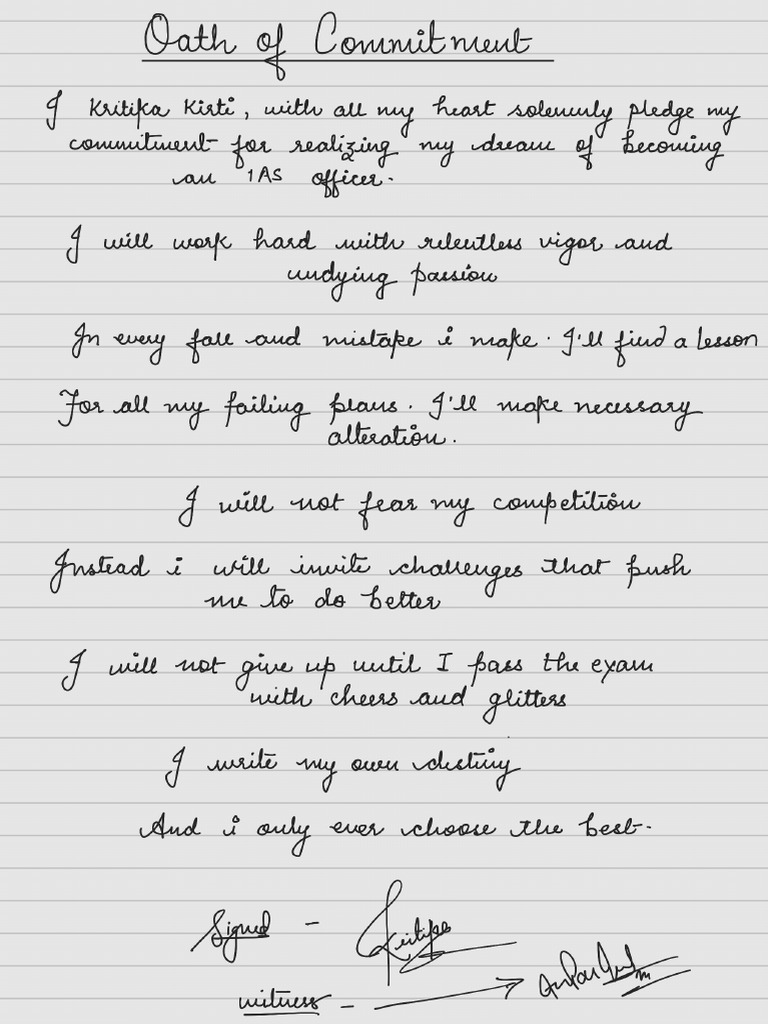 Oath of Commitment
I Kritika Kirti, with all my heart solemnly pledge my
commitment for realizing my dream of becoming
an IAS officer.
I will work hard with relentless vigor and
undying passion
In every fall and mistake i make. I'll find a lesson
For all my failing plans. I'll make necessary
alteration.
I will not fear my competition
Instead i will invite challenges that push
me to do better
I will not give up until I pass the exam
with cheers and glitters
I write my own destiny
And i only ever choose the best.
Signed - Kritika
witness -